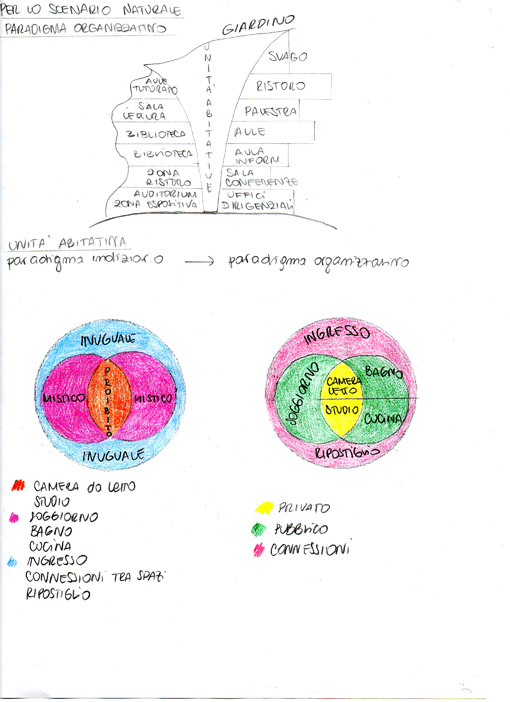 PER LO SCENARIO NATURALE
PARADIGMA ORGANIZZATIVO
GIARDINO
UNITA' ABITATIVE
SVAGO
AULE
TUTORATO
RISTORO
SALA
LETTURA
PALESTRA
BIBLIOTECA
AULE
BIBLIOTECA
AULA
INFORM.
ZONA
RISTORO
SALA
CONFERENZE
AUDITORIUM
ZONA ESPOSITIVA
UFFICI
DIRIGENZIALI
UNITA' ABITATIVA
paradigma indiziario → paradigma organizzativo
INUGUALE
MISTICO
PROIBITO
MISTICO
INUGUALE
INGRESSO
SOGGIORNO
CAMERA
LETTO
STUDIO
BAGNO
CUCINA
RIPOSTIGLIO
CAMERA DA LETTO
STUDIO
SOGGIORNO
BAGNO
CUCINA
INGRESSO
CONNESSIONI TRA SPAZI
RIPOSTIGLIO
PRIVATO
PUBBLICO
CONNESSIONI